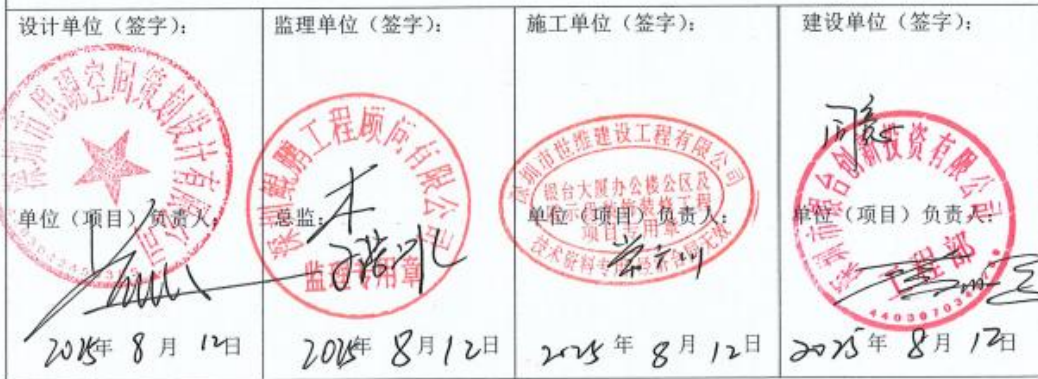 设计单位（签字）：
监理单位（签字）：
施工单位（签字）：
建设单位（签字）：
深圳市思观空间策划设计有限公司
深圳鲲鹏工程顾问有限公司
监理专用章
深圳市世维建设工程有限公司
银台大厦办公楼公区及
装修工程
项目专用章
技术资料专用
深圳市 创新投资有限公司
工程部
同意
单位（项目）负责人：
总监：
单位（项目）负责人：
单位（项目）负责人：
2025年 8月 12日
2025年 8月12日
2025年 8月12日
2025年 8月12日